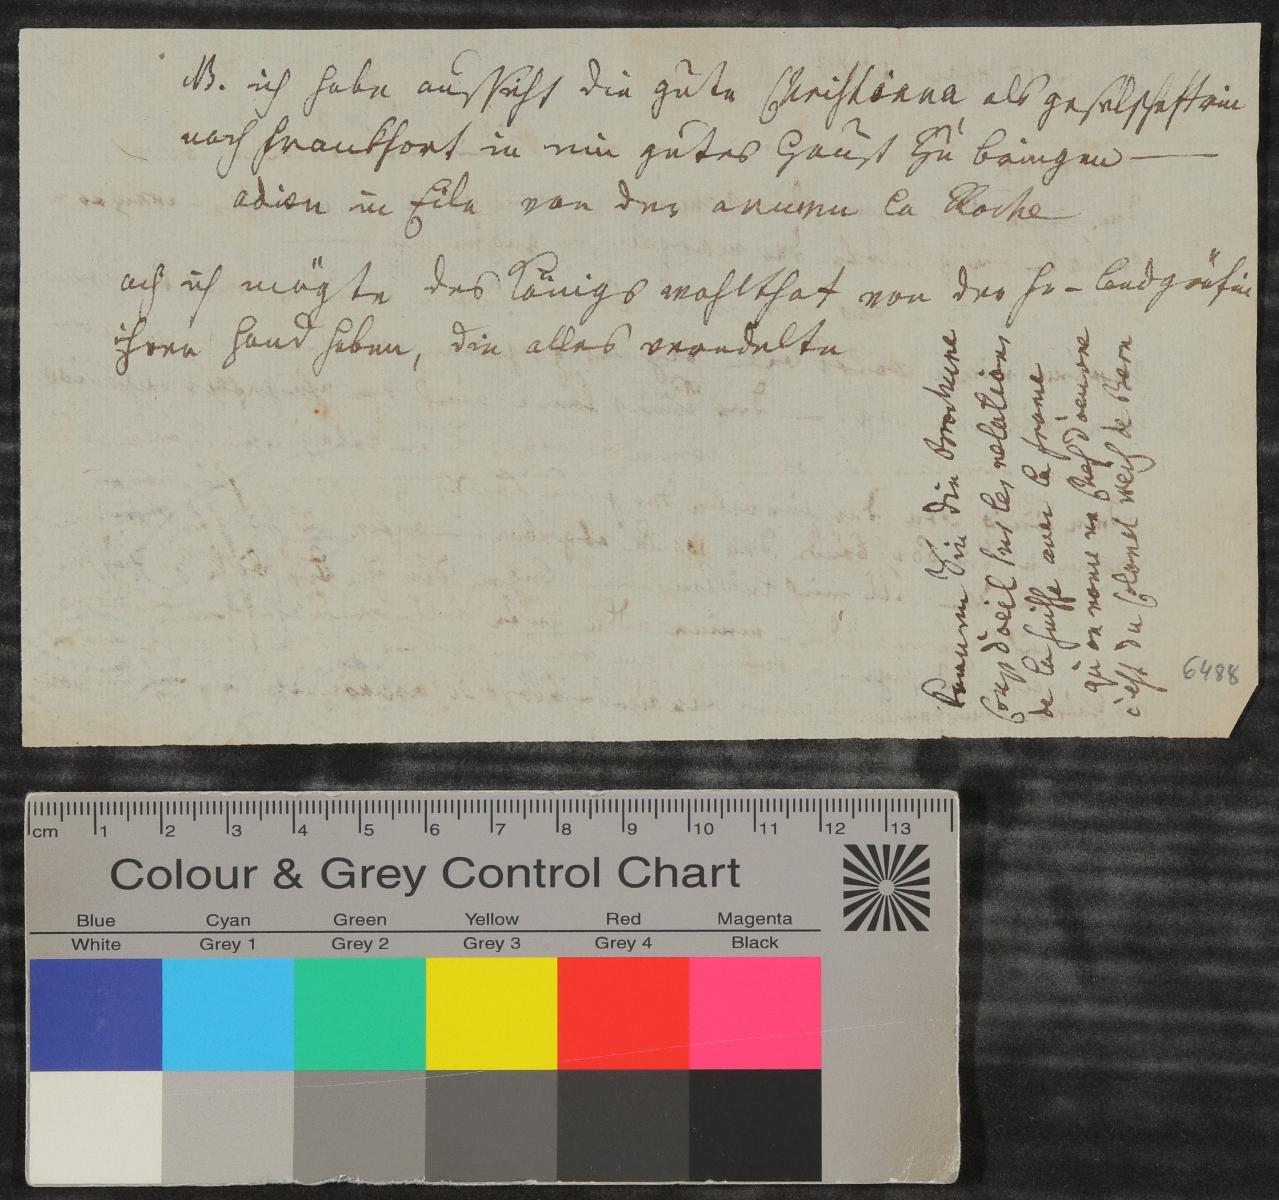 NB. ich habe aussicht die gute Christiana als geselschafterin
nach Frankfort in ein gutes Hauß zu bringen —
adieu in Eile von der armen La Roche
ach ich mögte des Königs wohlthat von der Fr– landgräfin
ihrer Hand haben, die alles veredelte
kennen Sie die Brochure
Coup d'oeil sur les relations
de la Suisse avec la france
qu'on nome un Chef d'oeuvre
c'est du Colonel weiß de Bern
6488
cm 1 2 3 4 5 6 7 8 9 10 11 12 13
Colour & Grey Control Chart
Blue Cyan Green Yellow Red Magenta
White Grey 1 Grey 2 Grey 3 Grey 4 Black